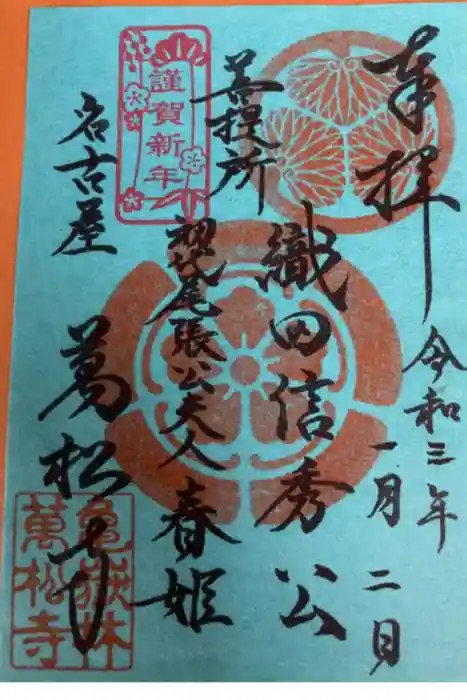 奉拝
令和三年
一月二日
菩提所
織田信秀公
初代尾張公夫人 春姫
謹賀新年
名古屋
萬松寺
亀嶽林
萬松寺